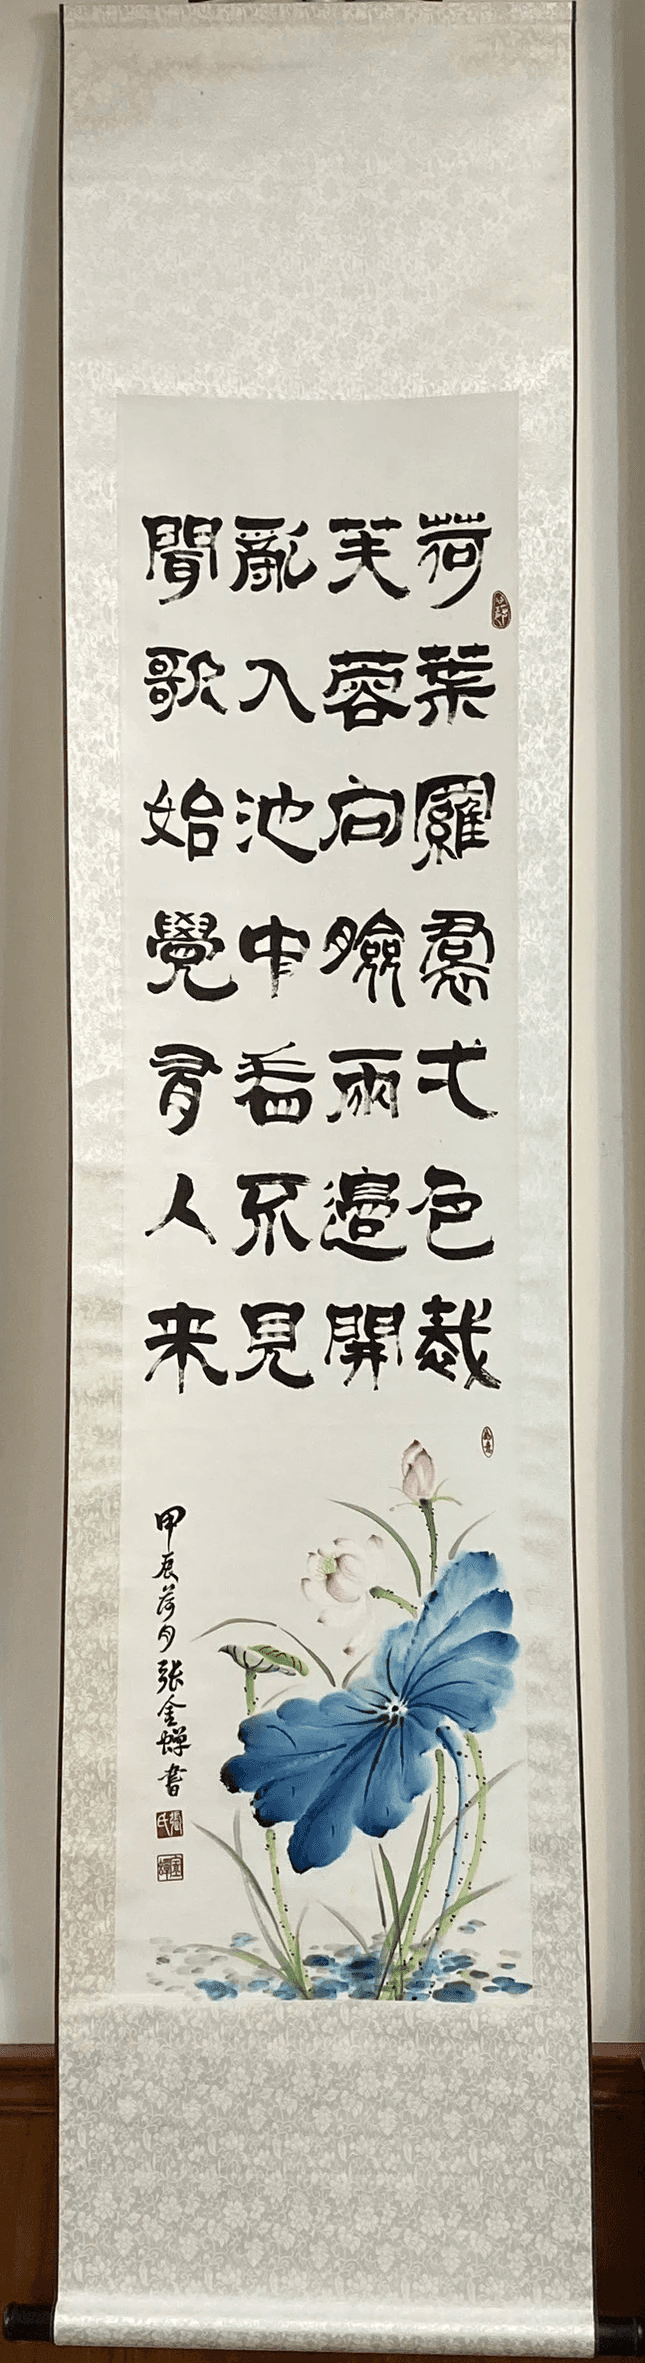 荷葉羅裠弌色裁
芙蓉向臉兩邊開
亂入池中看不見
聞歌始覺有人来
甲辰荷月張金蟬書
張氏
金蟬